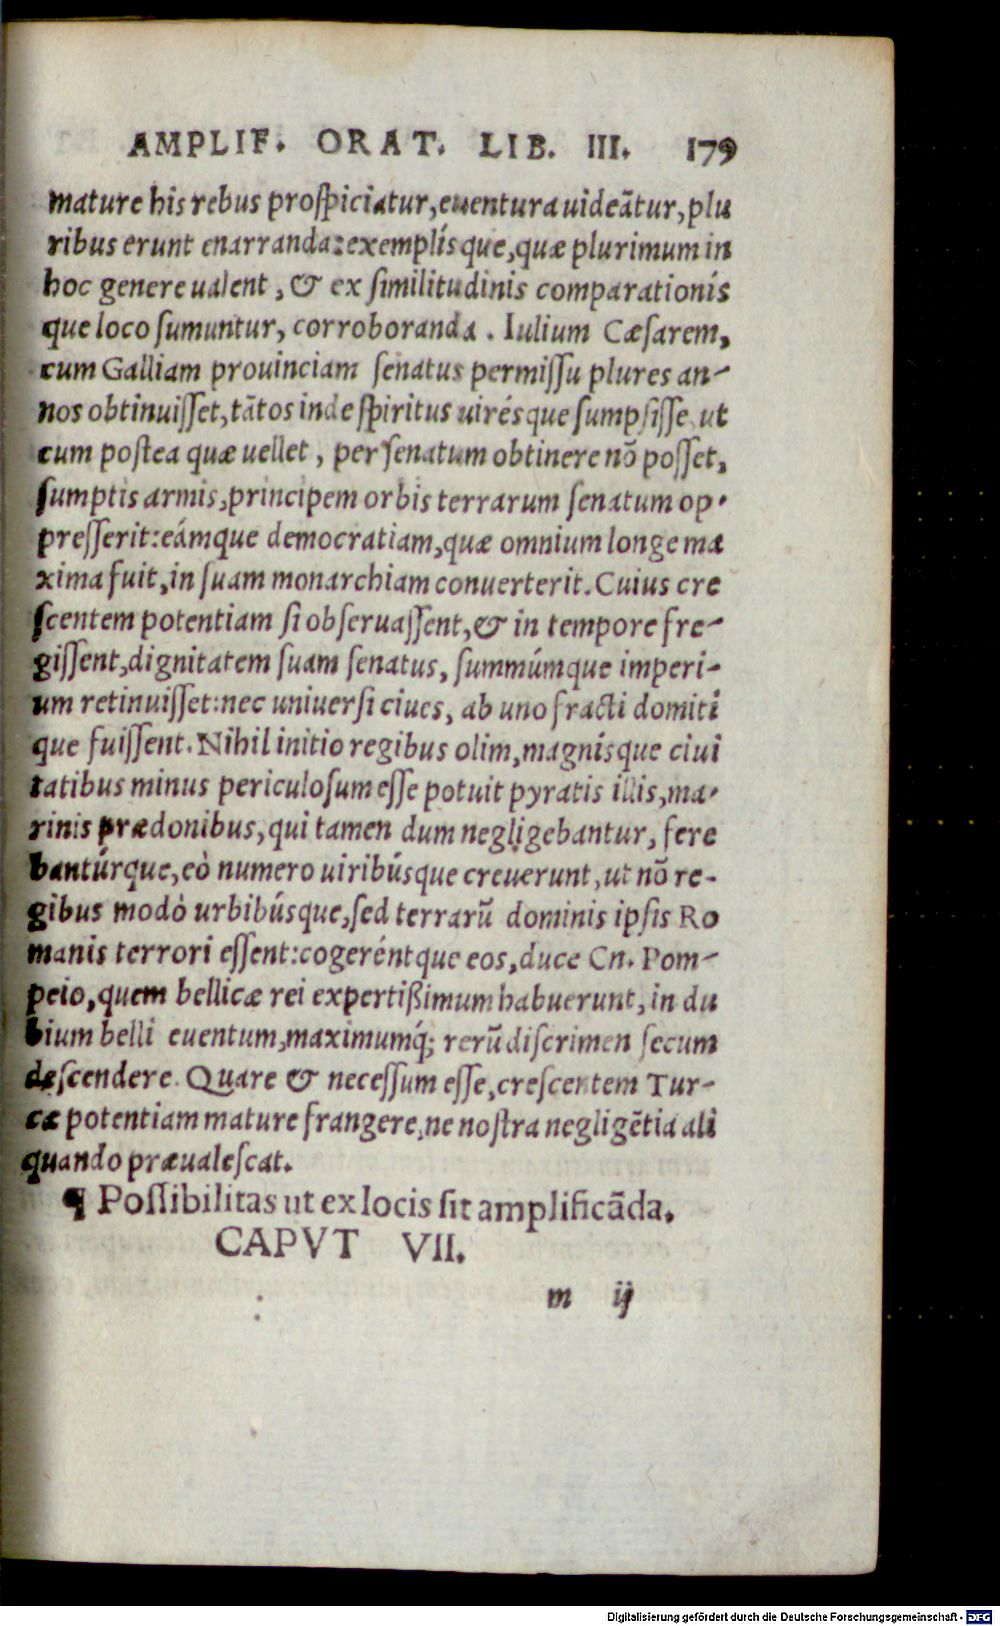 AMPLIF. ORAT. LIB. III. 179
mature his rebus prospiciatur, euentura uideãtur, plu
ribus erunt enarranda: exemplísque, quæ plurimum in
hoc genere ualent, & ex similitudinis comparationis
que loco sumuntur, corroboranda. Iulium Cæsarem,
cum Galliam prouinciam senatus permissu plures an-
nos obtinuisset, tãtos inde spiritus uirésque sumpsisse, ut
cum postea quæ uellet, per senatum obtinere nõ posset,
sumptis armis, principem orbis terrarum senatum op-
presserit: eámque democratiam, quæ omnium longe ma
xima fuit, in suam monarchiam conuerterit. Cuius cre
scentem potentiam si obseruassent, & in tempore fre-
gissent, dignitatem suam senatus, summúmque imperi-
um retinuisset: nec uniuersi ciues, ab uno fracti domiti
que fuissent. Nihil initio regibus olim, magnísque ciui
tatibus minus periculosum esse potuit pyratis illis, ma-
rinis prædonibus, qui tamen dum negligebantur, fere
bantúrque, eò numero uiribúsque creuerunt, ut nõ re-
gibus modò urbibúsque, sed terrarũ dominis ipsis Ro
manis terrori essent: cogeréntque eos, duce Cn. Pom-
peio, quem bellicæ rei expertißimum habuerunt, in du
bium belli euentum, maximumq́; rerũ discrimen secum
descendere. Quare & necessum esse, crescentem Tur-
cæ potentiam mature frangere, ne nostra negligẽtia ali
quando præualescat.
¶ Possibilitas ut ex locis sit amplificãda.
CAPVT VII.
m ij
Digitalisierung gefördert durch die Deutsche Forschungsgemeinschaft - DFG